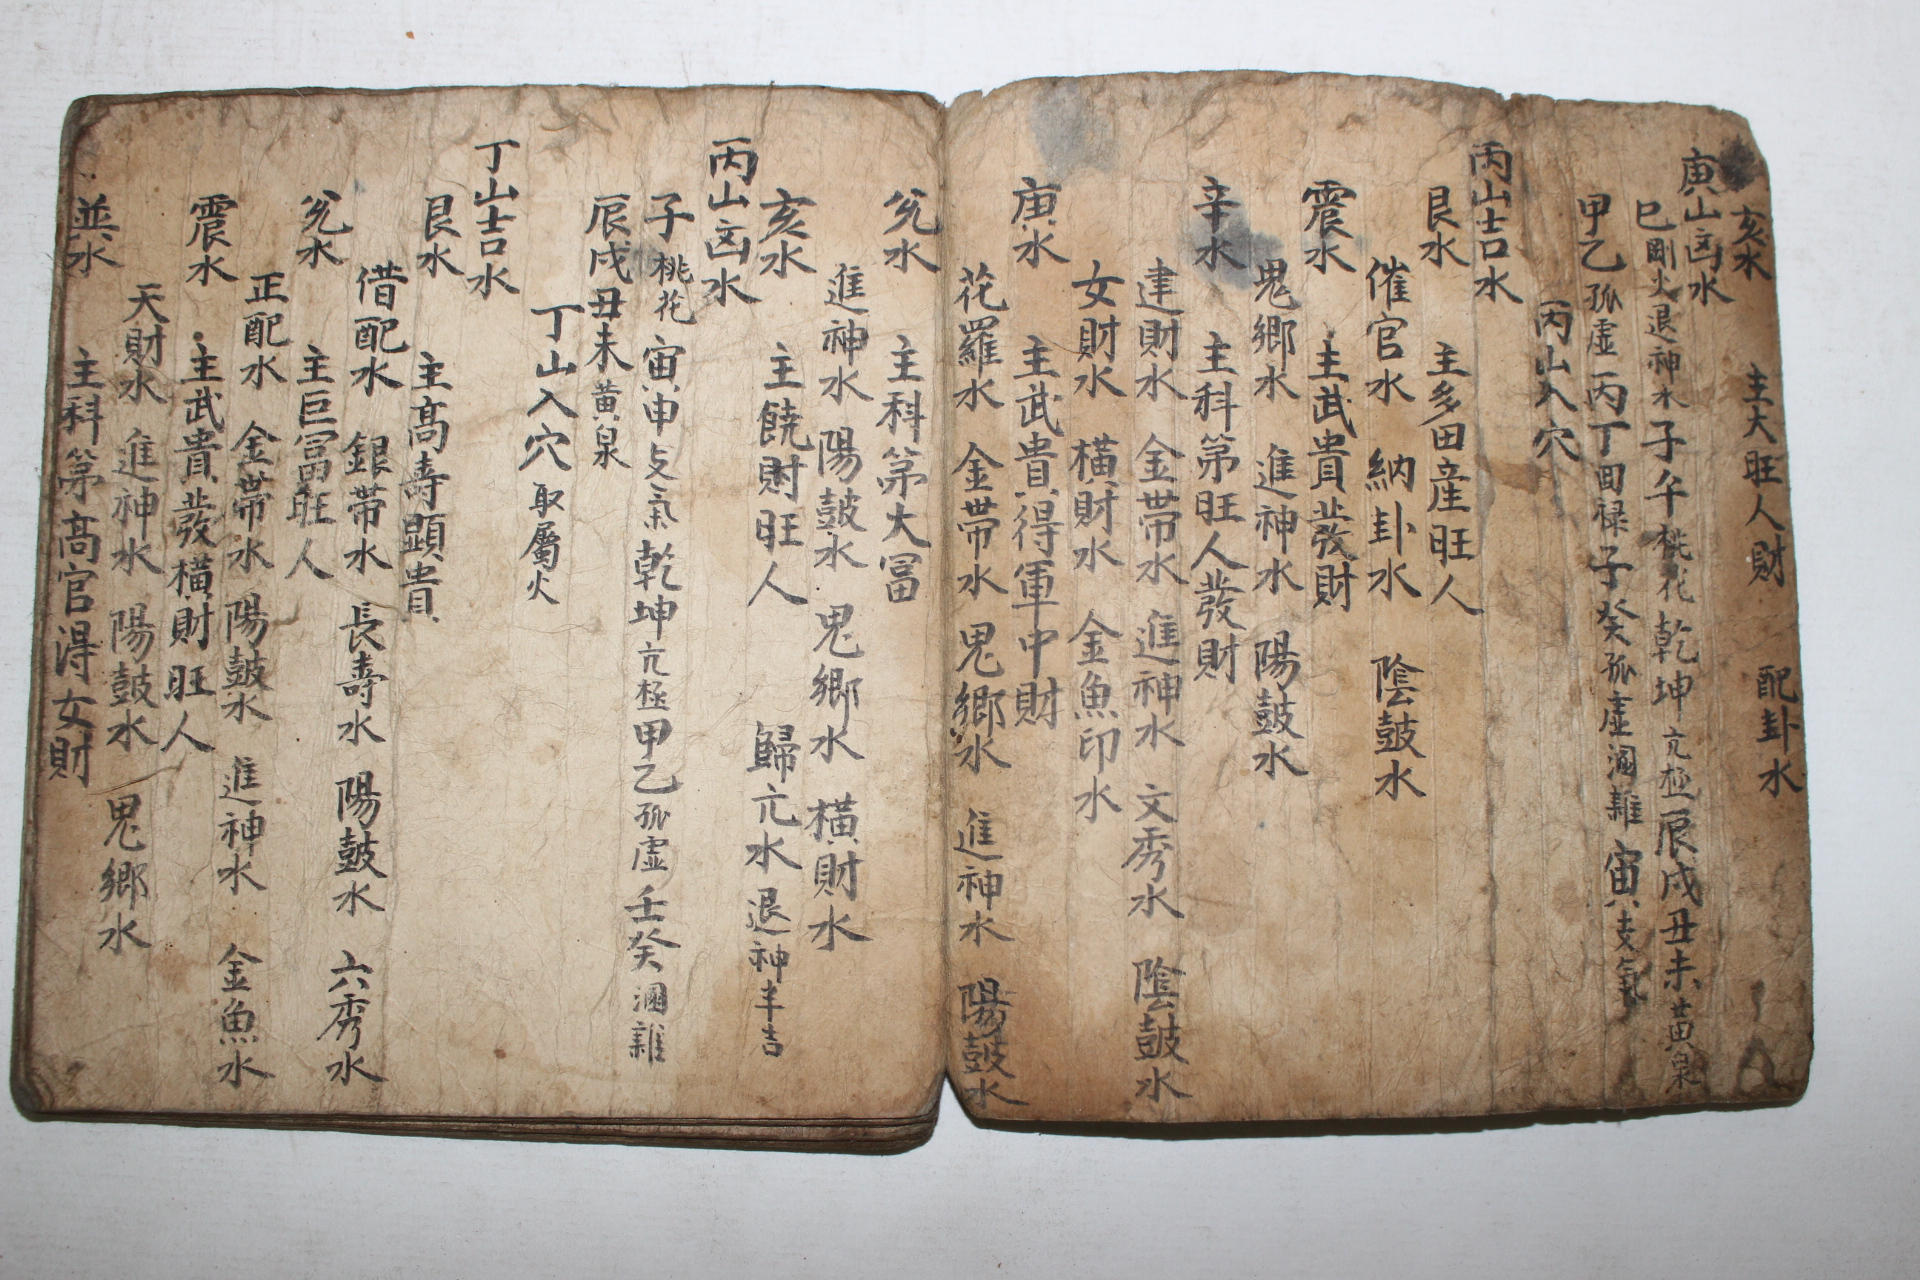 亥水 主大旺人財 配卦水
庚山凶水
巳剛火退神水子午桃花乾坤亢極辰戌丑未黃泉
甲乙孤虛丙丁回祿子癸孤虛漏雜寅支氣
丙山入穴
丙山吉水
艮水 主多田産旺人
催官水 納卦水 陰鼓水
震水 主武貴發財
鬼鄉水 進神水 陽鼓水
辛水 主科第旺人發財
建財水 金帶水 進神水 文秀水 陰鼓水
女財水 橫財水 金魚印水
庚水 主武貴得軍中財
花羅水 金帶水 鬼鄉水 進神水 陽鼓水
兊水 主科第大冨
進神水 陽鼓水 鬼鄉水 橫財水
亥水 主饒財旺人 歸亢水 退神半吉
丙山凶水
子桃花寅申支氣乾坤亢極甲乙孤虛壬癸漏雜
辰戌丑未黃泉
丁山入穴 取屬火
丁山吉水
艮水 主高壽顯貴
借配水 銀帶水 長壽水 陽鼓水 六秀水
兊水 主巨冨旺人
正配水 金帶水 陽鼓水 進神水 金魚水
震水 主武貴發橫財旺人
天財水 進神水 陽鼓水 鬼鄉水
巽水 主科第高官得女財